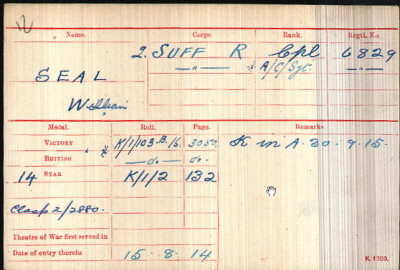 Name. Corps. Rank. Regtl. No.
2. SUFF R Cpl 6829
SEAL —"— * A/C/Sgt. —"—
William
Medal. Roll. Page. Remarks
VICTORY * K/1/103.B.16. 3050 K in A. 30.9.15.
BRITISH —do— do.
14 STAR K/1/2 132
Clasp 2/2880.
Theatre of War first served in
Date of entry therein 15-8-14
K. 1380.